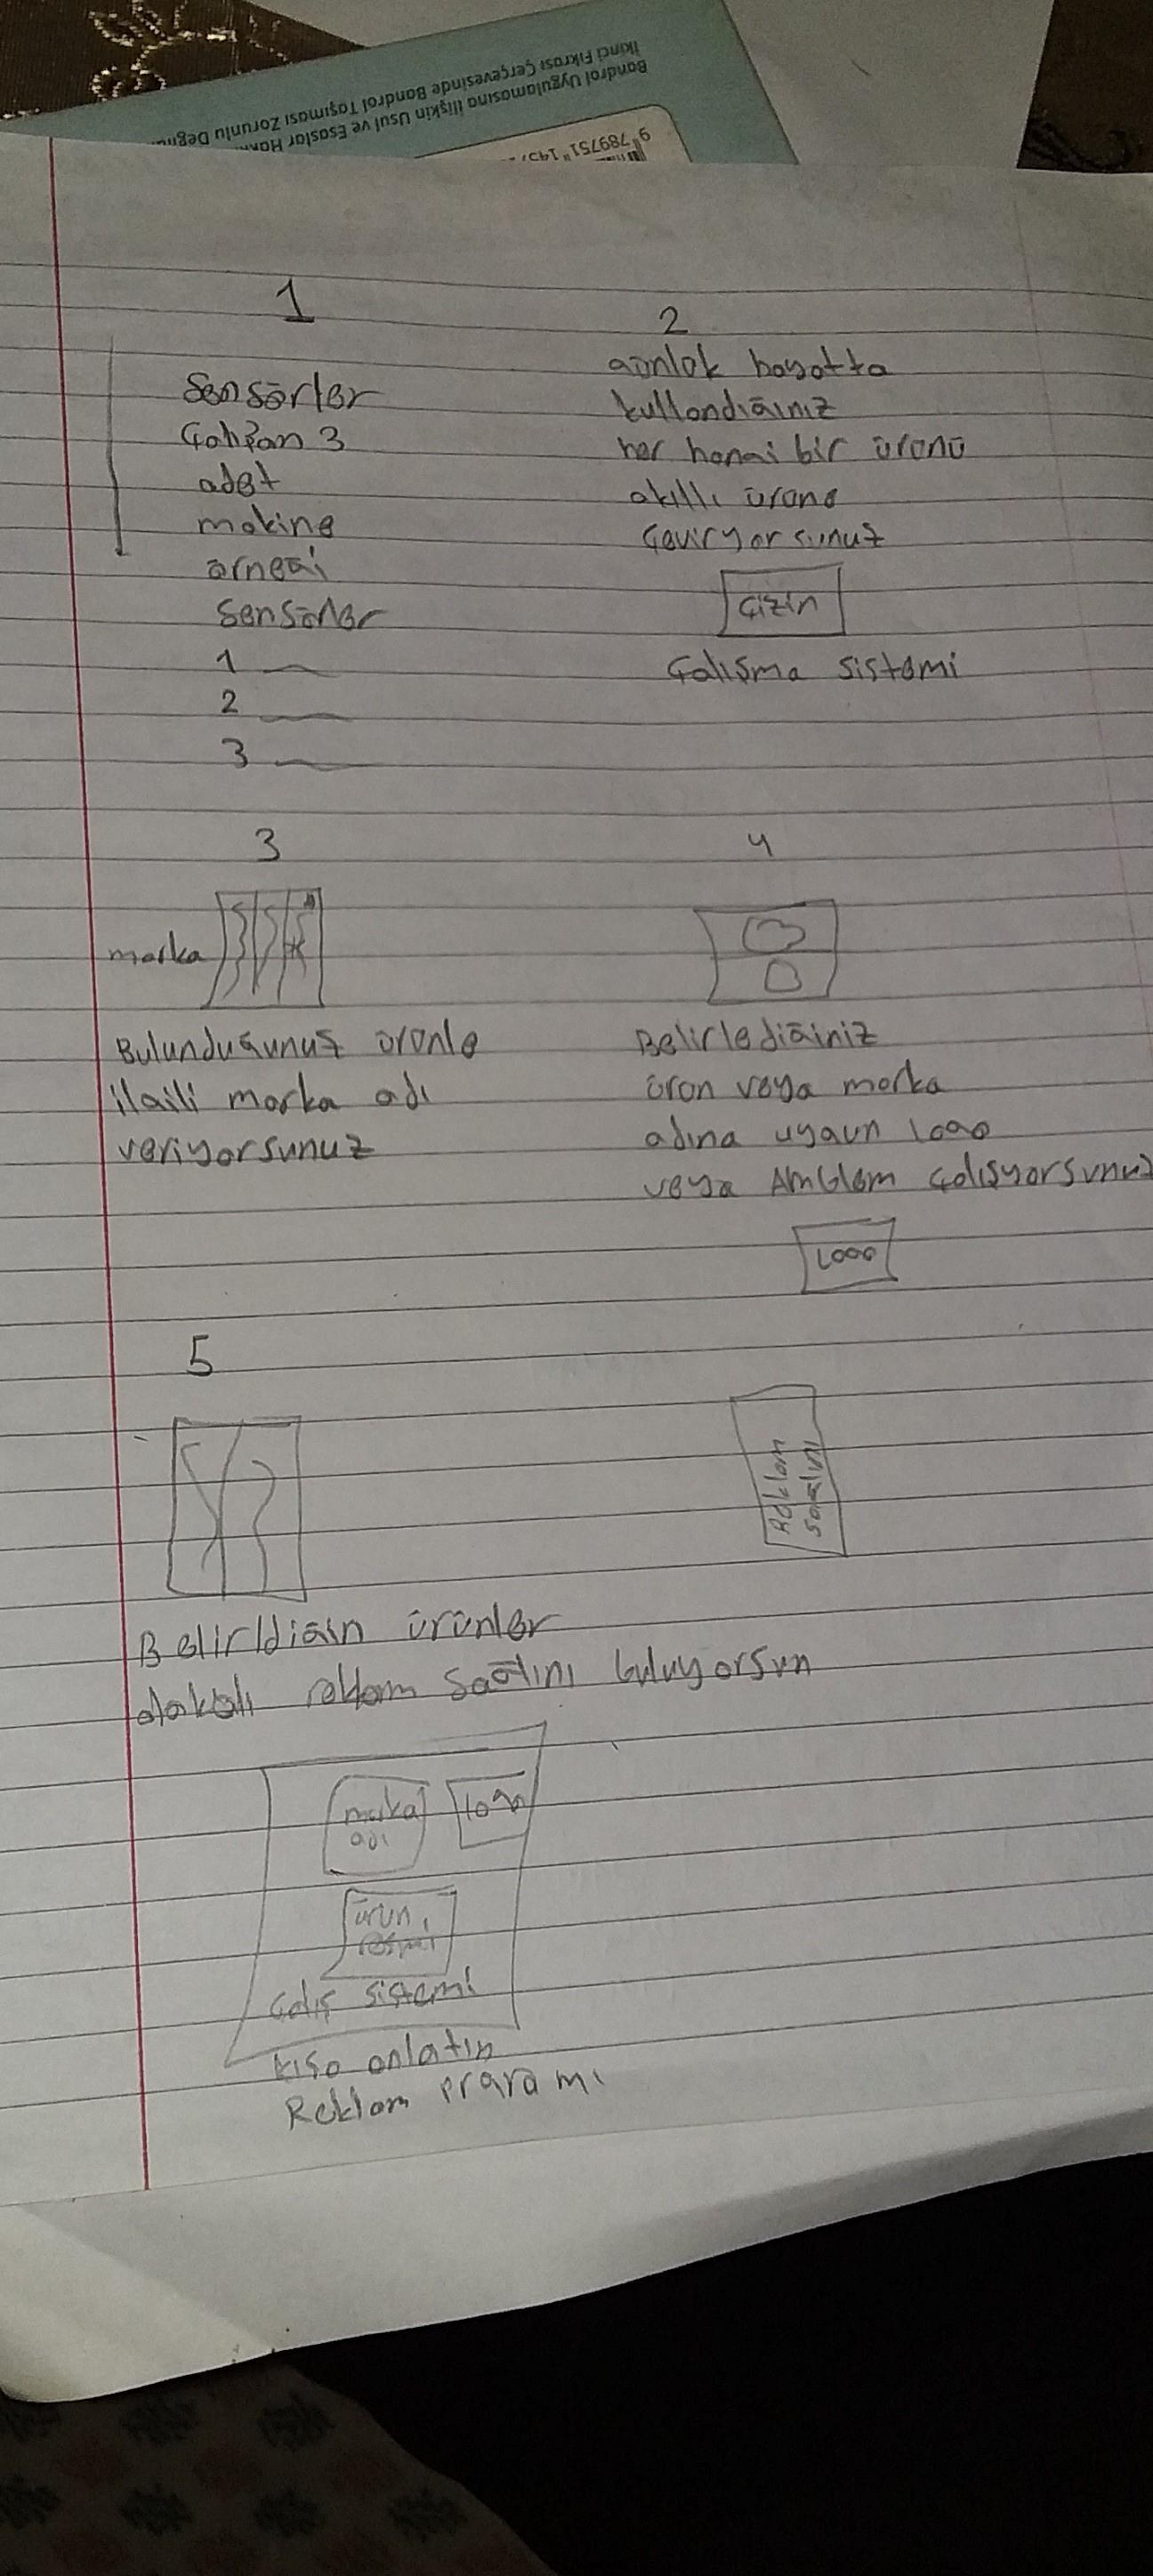 İkinci Fıkrası Çerçevesinde Bandrol Taşıması Zorunlu Değ
Bandrol Uygulamasına İlişkin Usul ve Esaslar
9 789751
1
Sensörler
Çalışan 3
adet
makine
örneği
Sensörler
1
2
3
2
günlük hayatta
kullandığınız
her hangi bir ürünü
akıllı ürüne
Çeviryorsunuz
Çizin
Çalışma sistemi
3
marka
Bulunduğunuz ürünle
ilgili marka adı
veriyorsunuz
4
Belirlediğiniz
ürün veya marka
adına uygun logo
veya Amblem çalışyorsunuz
Logo
5
Reklam
Belirldiğin ürünler
alakalı reklam buluyorsun
marka
adı
logo
ürün
resmi
Çalış sistemi
kısa anlatın
Reklam